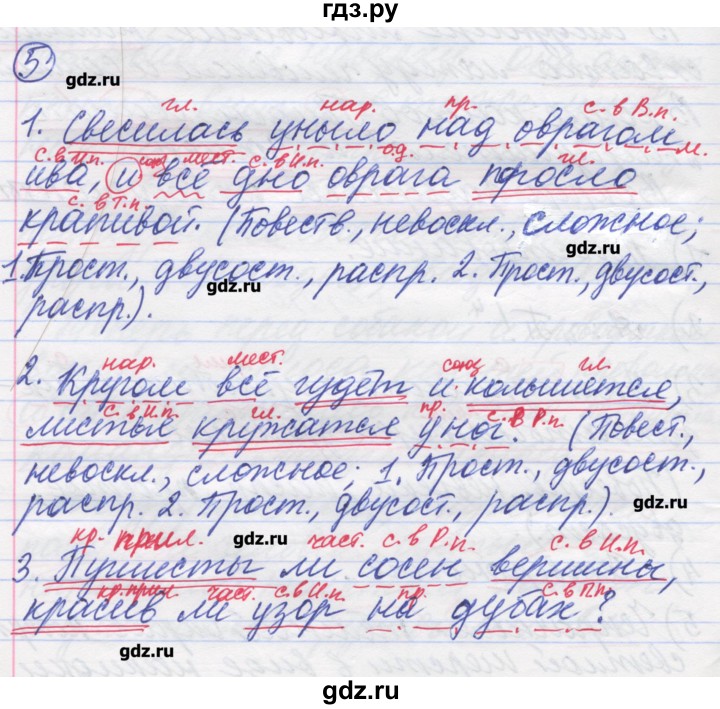 гдз.ру
5
gdz.ru
gdz.ru
гл. нар. пр. с. в В.п.
1. Свесилась уныло над оврагом
с. в И.п. союз мест. с. в И.п. од. гл.
ива, и всё дно оврага поросло
с. в Т.п.
крапивой. (Повеств., невоскл., сложное;
gdz.ru
1. Прост., двусост., распр. 2. Прост., двусост.,
gdz.ru
распр.).
нар. мест. союз гл.
2. Кругом всё гудёт и колышется,
с. в И.п. гл. пр. с. в Р.п.
листья кружатся у ног. (Повест.,
невоскл., сложное; 1. Прост., двусост.,
распр. 2. Прост., двусост., распр.).
gdz.ru
кр. прил. gdz.ru част. с. в Р.п. с. в И.п.
3. Пушисты ли сосен вершины,
кр. прил. част. с. в И.п. пр. с. в П.п.
красив ли узор на дубах?
gdz.ru
gdz.ru
gdz.ru